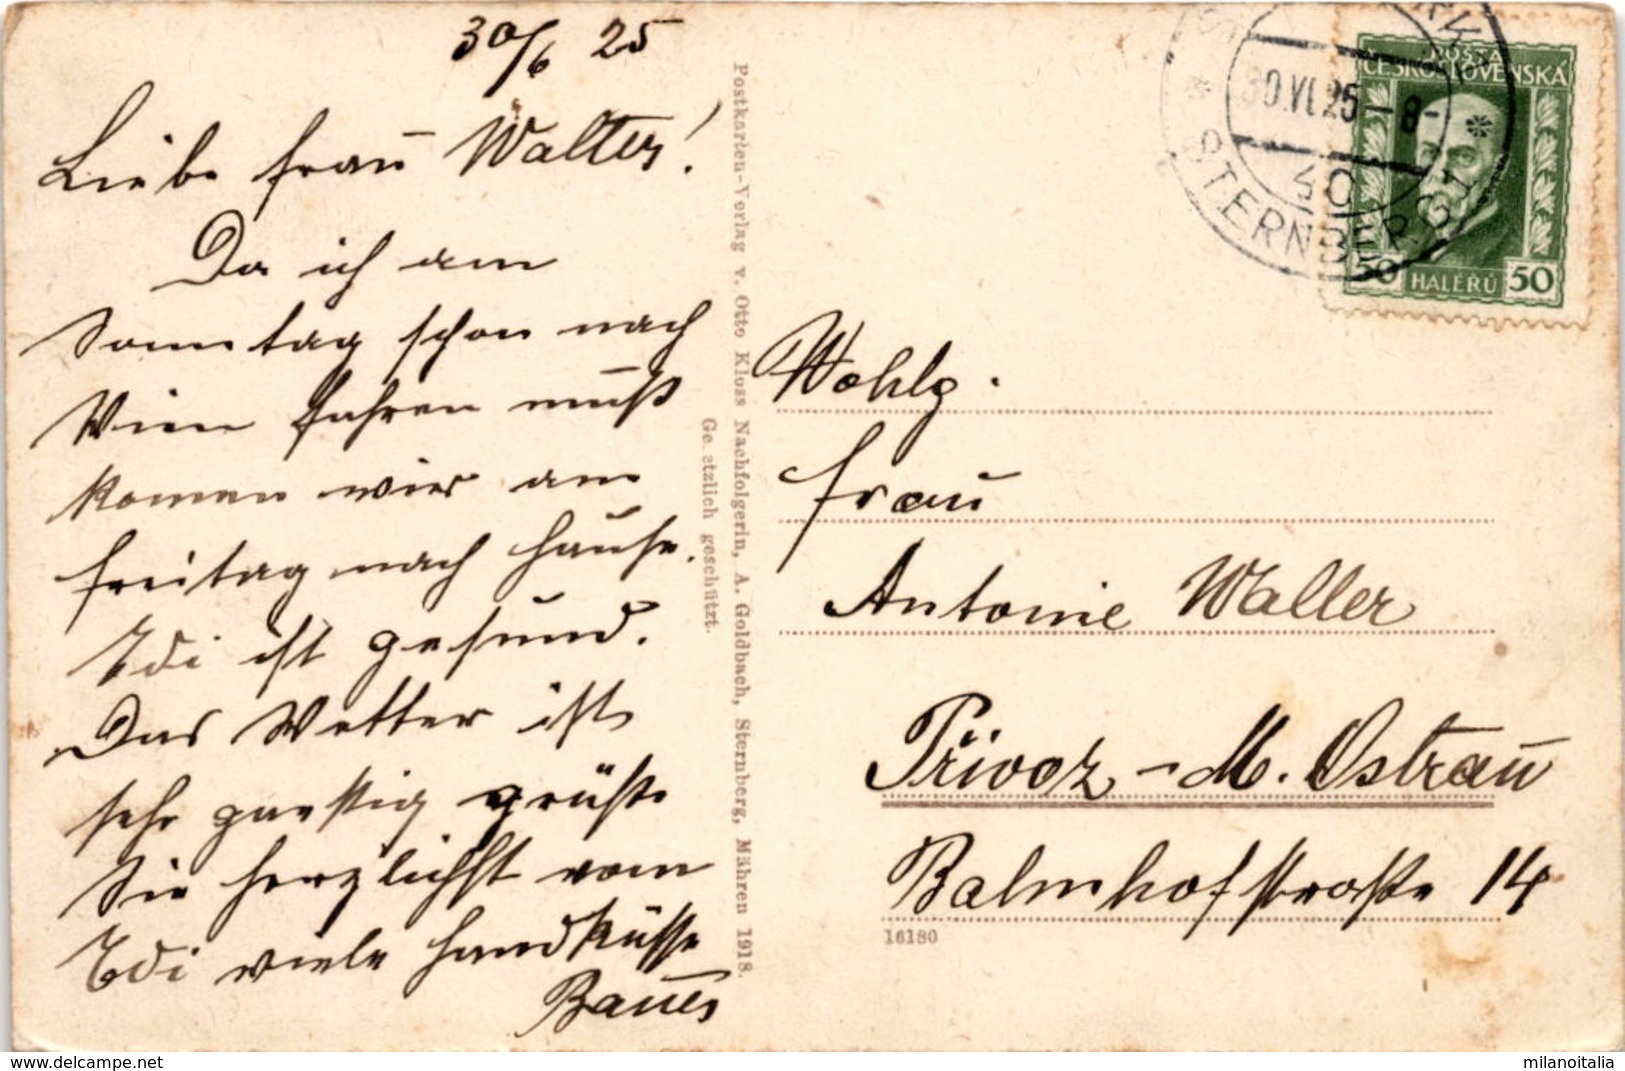 30/6 25
Liebe Frau Walter!
Da ich am
Sonntag schon nach
Wien fahren muß
komen wir am
Freitag nach Hause.
Edi ist gesund.
Das Wetter ist
sehr günstig grüßt
Sie herzlichst vom
Edi viele Handküsse
Bauer
Postkarten-Verlag v. Otto Kloss Nachfolgerin, A. Goldbach, Sternberg, Mähren 1918.
Gesetzlich geschützt.
POŠTA
ČESKOSLOVENSKÁ
50 HALÉRŮ 50
30.VI.25-8-
STERNBERG
Wohlg.
Frau
Antonie Walter
Přivoz - M. Ostrau
Bahnhofstraße 14
16180
delcampe.net
milanoitalia